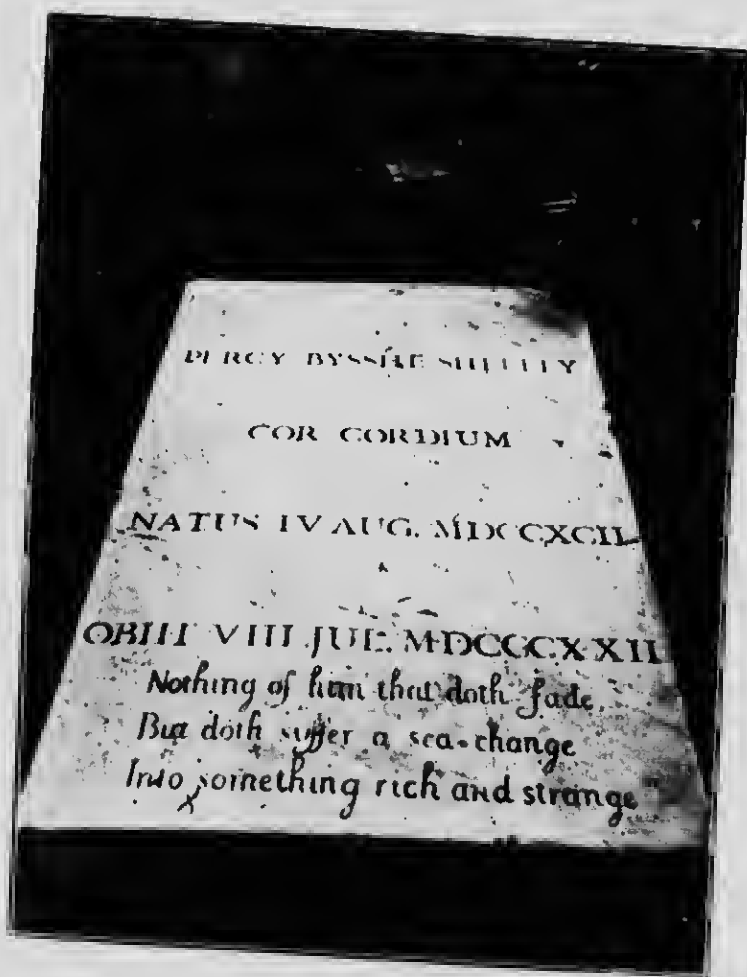 PERCY BYSSHE SHELLEY
COR CORDIUM
NATUS IV AUG. MDCCXCII
OBIIT VIII JUL. MDCCCXXII
Nothing of him that doth fade,
But doth suffer a sea-change
Into something rich and strange